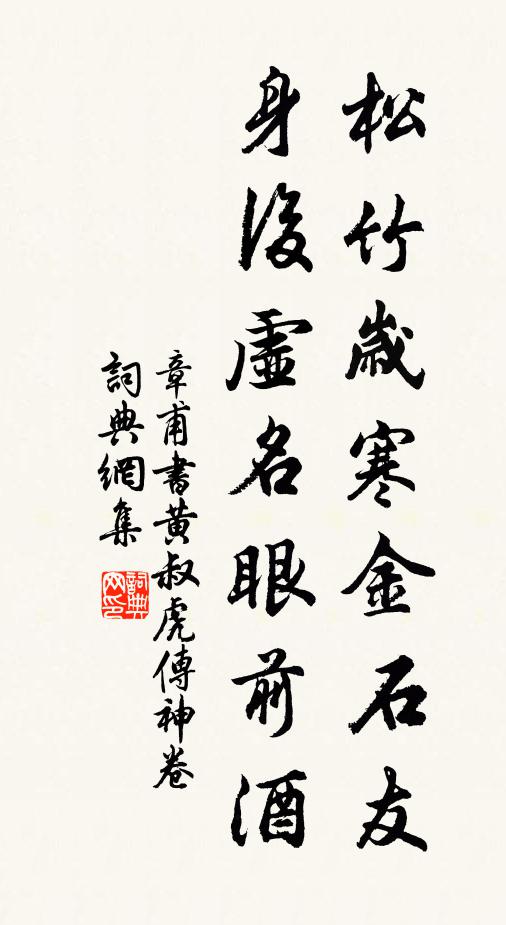 松竹歲寒金石友
身後虛名眼前酒
章甫書黃叔虎傳神卷
詞典網集
詞典网印